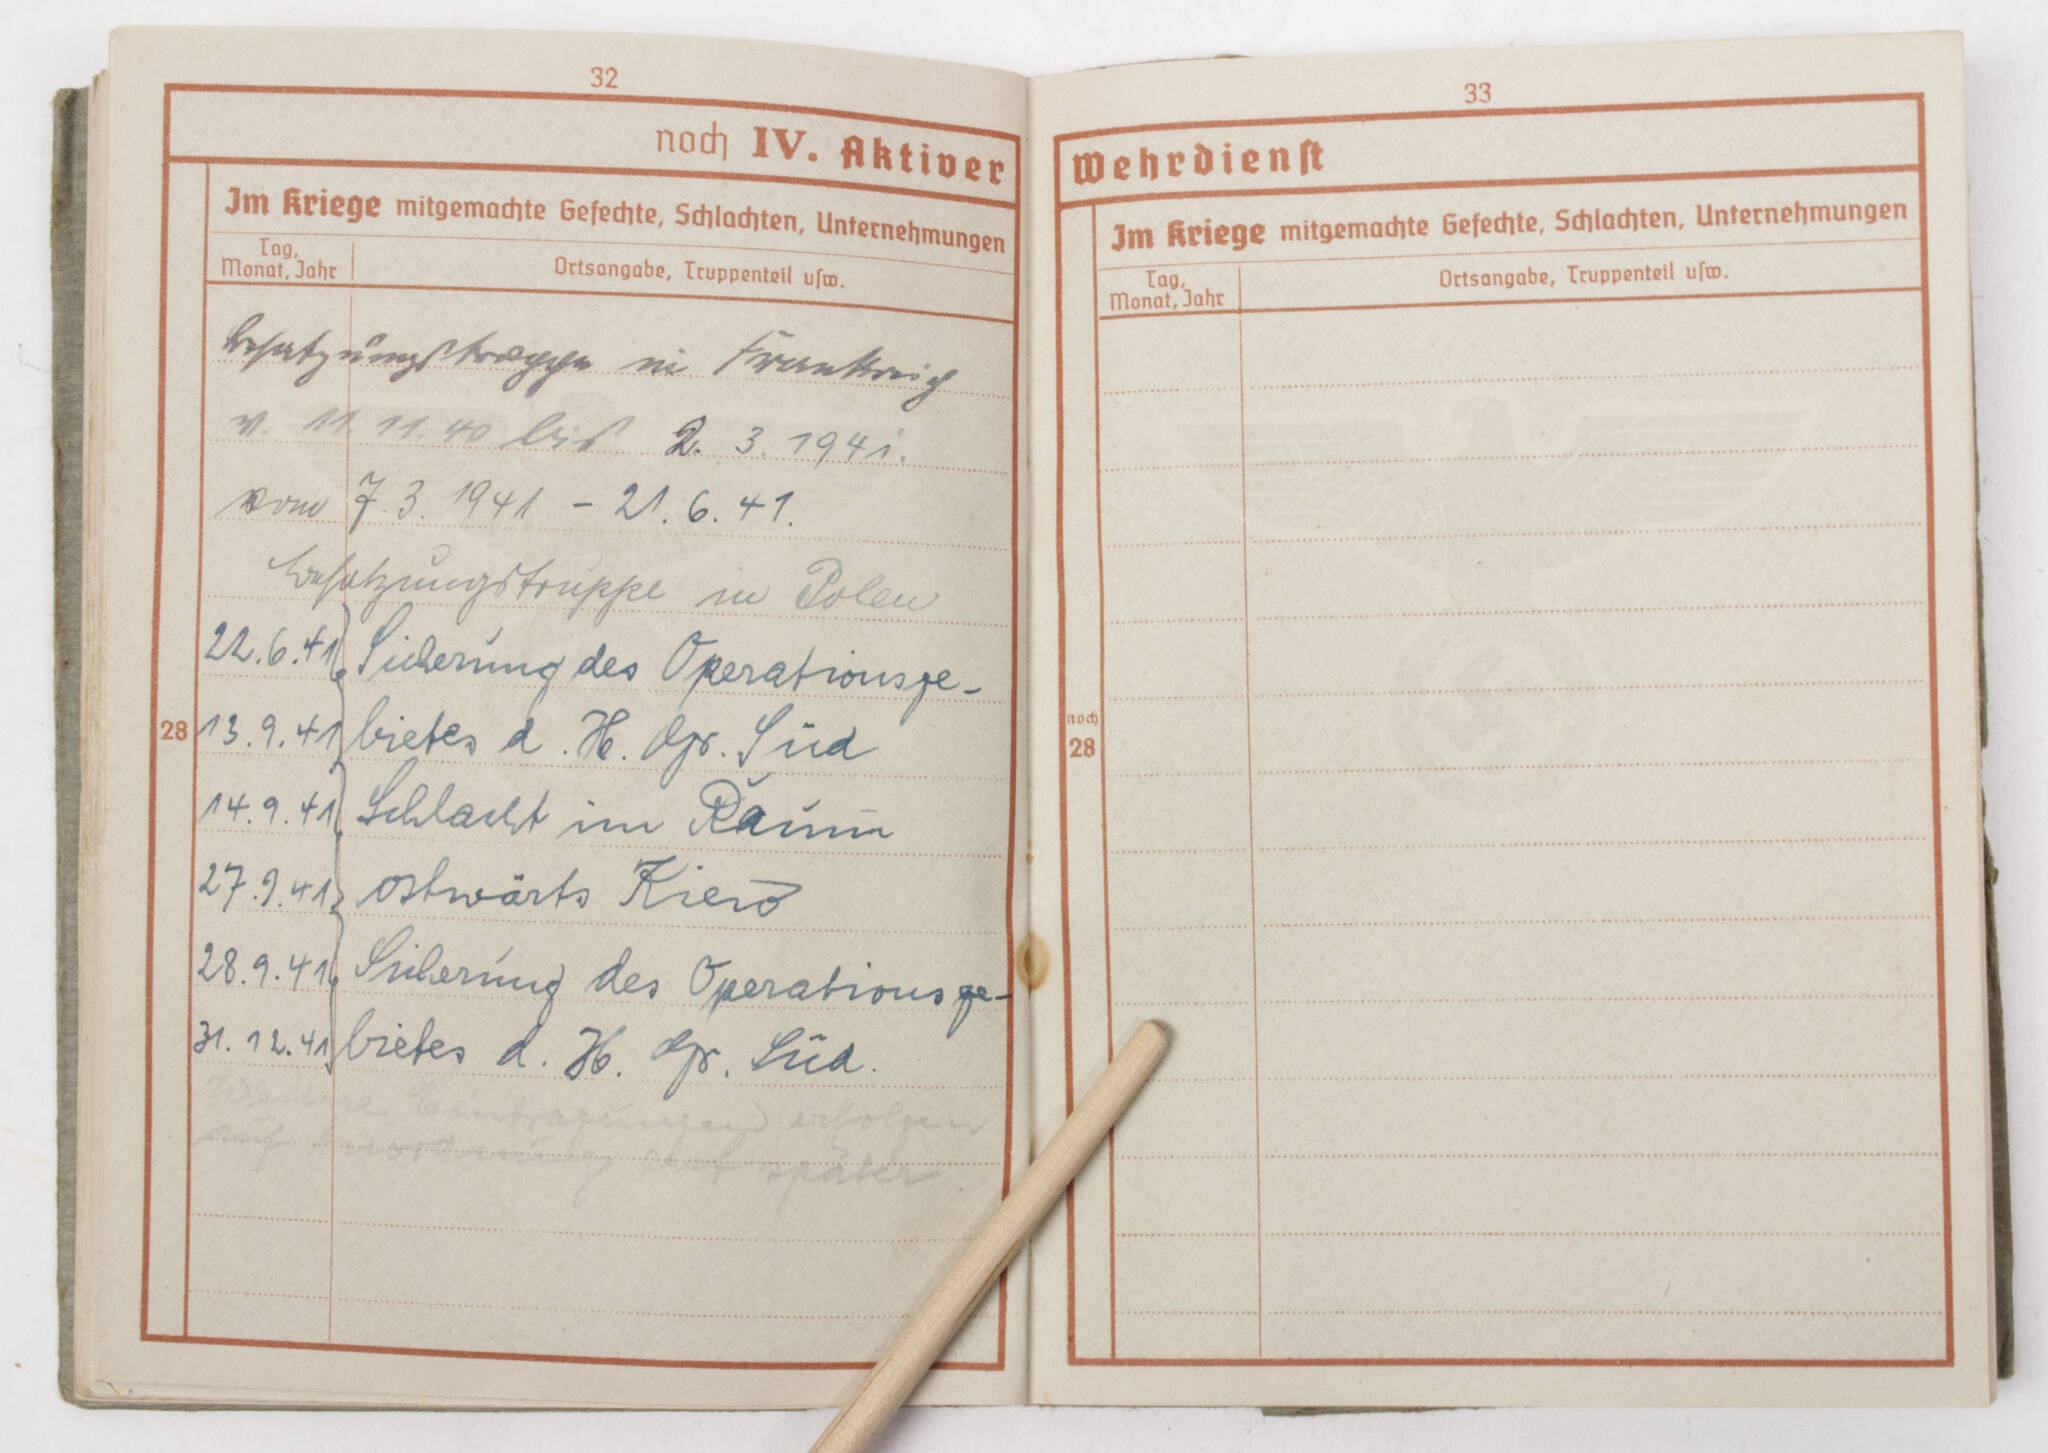 32
noch IV. Aktiver
Im Kriege mitgemachte Gefechte, Schlachten, Unternehmungen
Tag,
Monat, Jahr
Ortsangabe, Truppenteil usw.
Besatzungstruppe in Frankreich
v. 11.11.40 bis 2. 3. 1941.
vom 7.3. 1941 - 21.6.41.
Besatzungstruppe in Polen
22.6.41 Sicherung des Operationsge-
28
13.9.41 bietes d. H. Gr. Süd
14.9.41 Schlacht im Raum
27.9.41 ostwärts Kiew
28.9.41 Sicherung des Operationsge-
31.12.41 bietes d. H. Gr. Süd.
Weitere Eintragungen erfolgen
auf Anordnung erst später.
33
Wehrdienst
Im Kriege mitgemachte Gefechte, Schlachten, Unternehmungen
Tag,
Monat, Jahr
Ortsangabe, Truppenteil usw.
noch
28